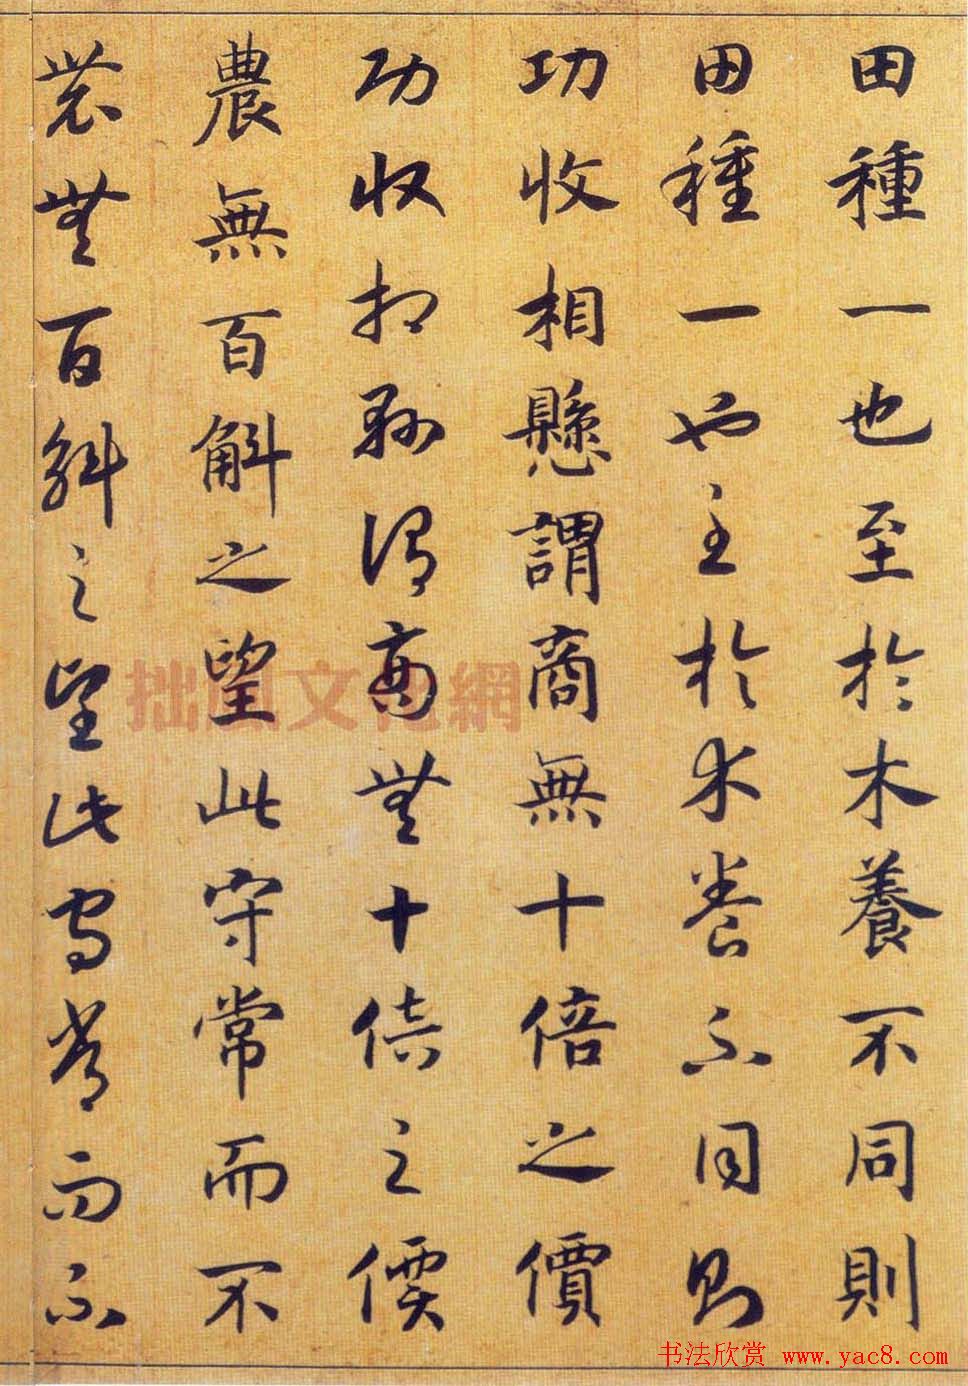 田種一也至於木養不同則
田種一也至於木養不同則
功收相懸謂商無十倍之價
功收相懸謂商無十倍之價
農無百斛之望此守常而不
農無百斛之望此守常而不
拙風文化網
书法欣赏 www.yac8.com